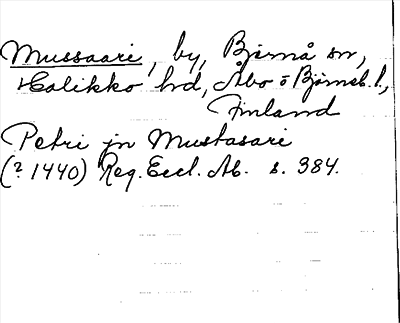 Mussaari, by, Bjärnå sn,
Halikko hd, Åbo o Björneb. l.,
Finland
Petri jn Mustasari
(? 1440) Reg. Eccl. Ab. s. 384.